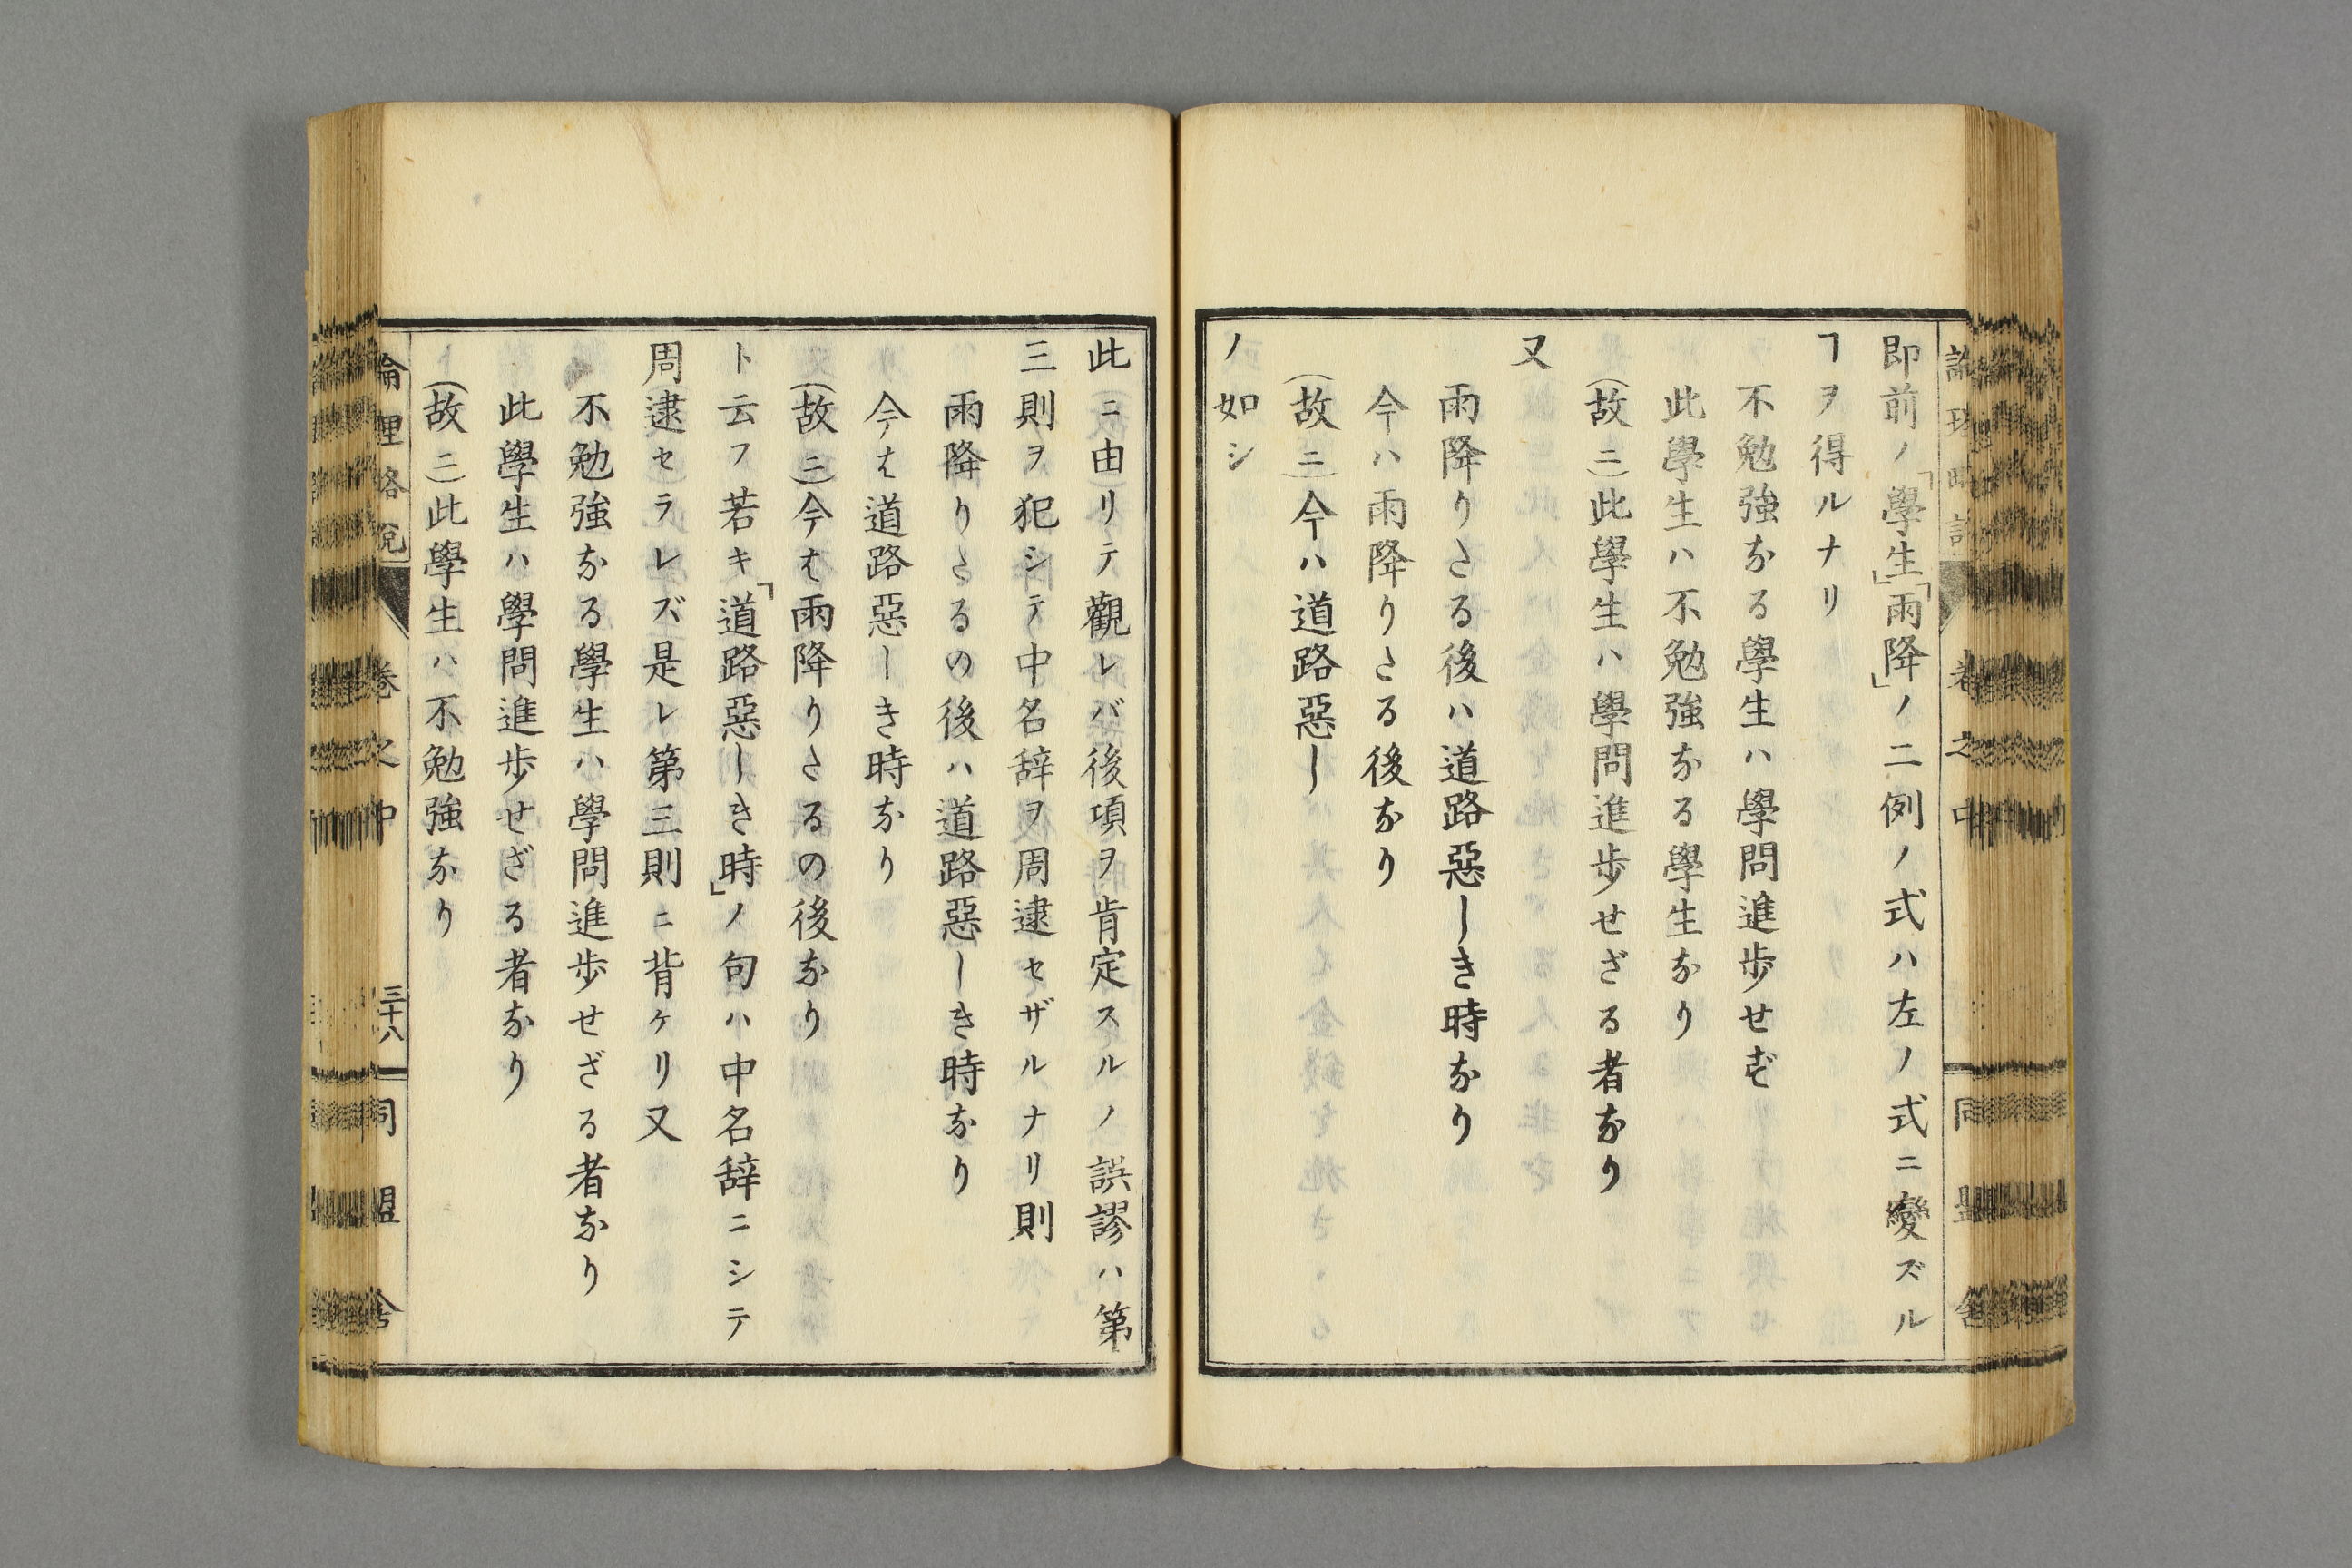 即前ノ「學生」「雨降」ノ二例ノ式ハ左ノ式ニ變ズル
ヿヲ得ルナリ
不勉強なる學生ハ學問進歩せず
此學生ハ不勉強なる學生なり
(故ニ)此學生ハ學問進歩せざる者なり
又
雨降りたる後ハ道路惡しき時なり
今ハ雨降りたる後なり
(故ニ)今ハ道路惡し
ノ如シ
此ニ由リテ觀レバ後項ヲ肯定スルノ誤謬ハ第
三則ヲ犯シテ中名辞ヲ周逮セザルナリ則
雨降りたるの後ハ道路惡しき時なり
今は道路惡しき時なり
(故ニ)今は雨降りたるの後なり
ト云フ若キ「道路惡しき時」ノ句ハ中名辞ニシテ
周逮セラレズ是レ第三則ニ背ケリ又
不勉強なる學生ハ學問進歩せざる者なり
此學生ハ學問進歩せざる者なり
(故ニ)此學生ハ不勉強なり
論理略説 卷之中 三十八 同盟舎